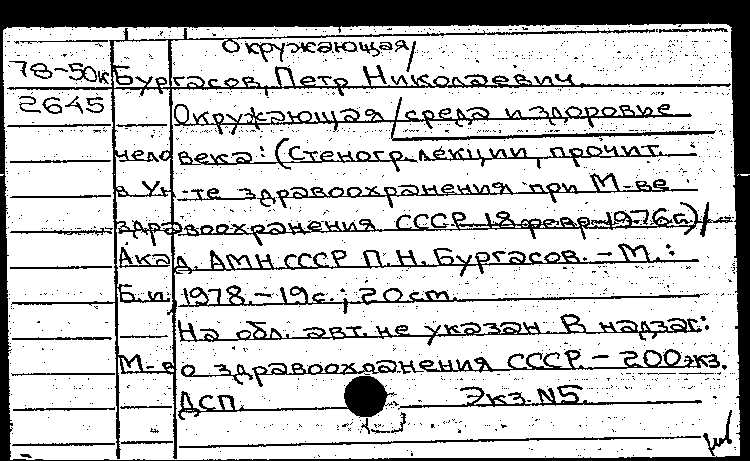 Окружающая/
78-50к Бургасов, Петр Николаевич.
2645 Окружающая /среда и здоровие
человека: (Стеногр. лекции, прочит.
в Ун-те здравоохранения при М-ве
здравоохранения СССР 18 февр. 1976 г.)/
Акад. АМН СССР П.Н. Бургасов. - М.:
Б.и., 1978. - 19 с.; 20 см.
На обл. авт. не указан. В надзаг:
М-во здравоохранения СССР. - 200 экз.
ДСП. Экз. N5.